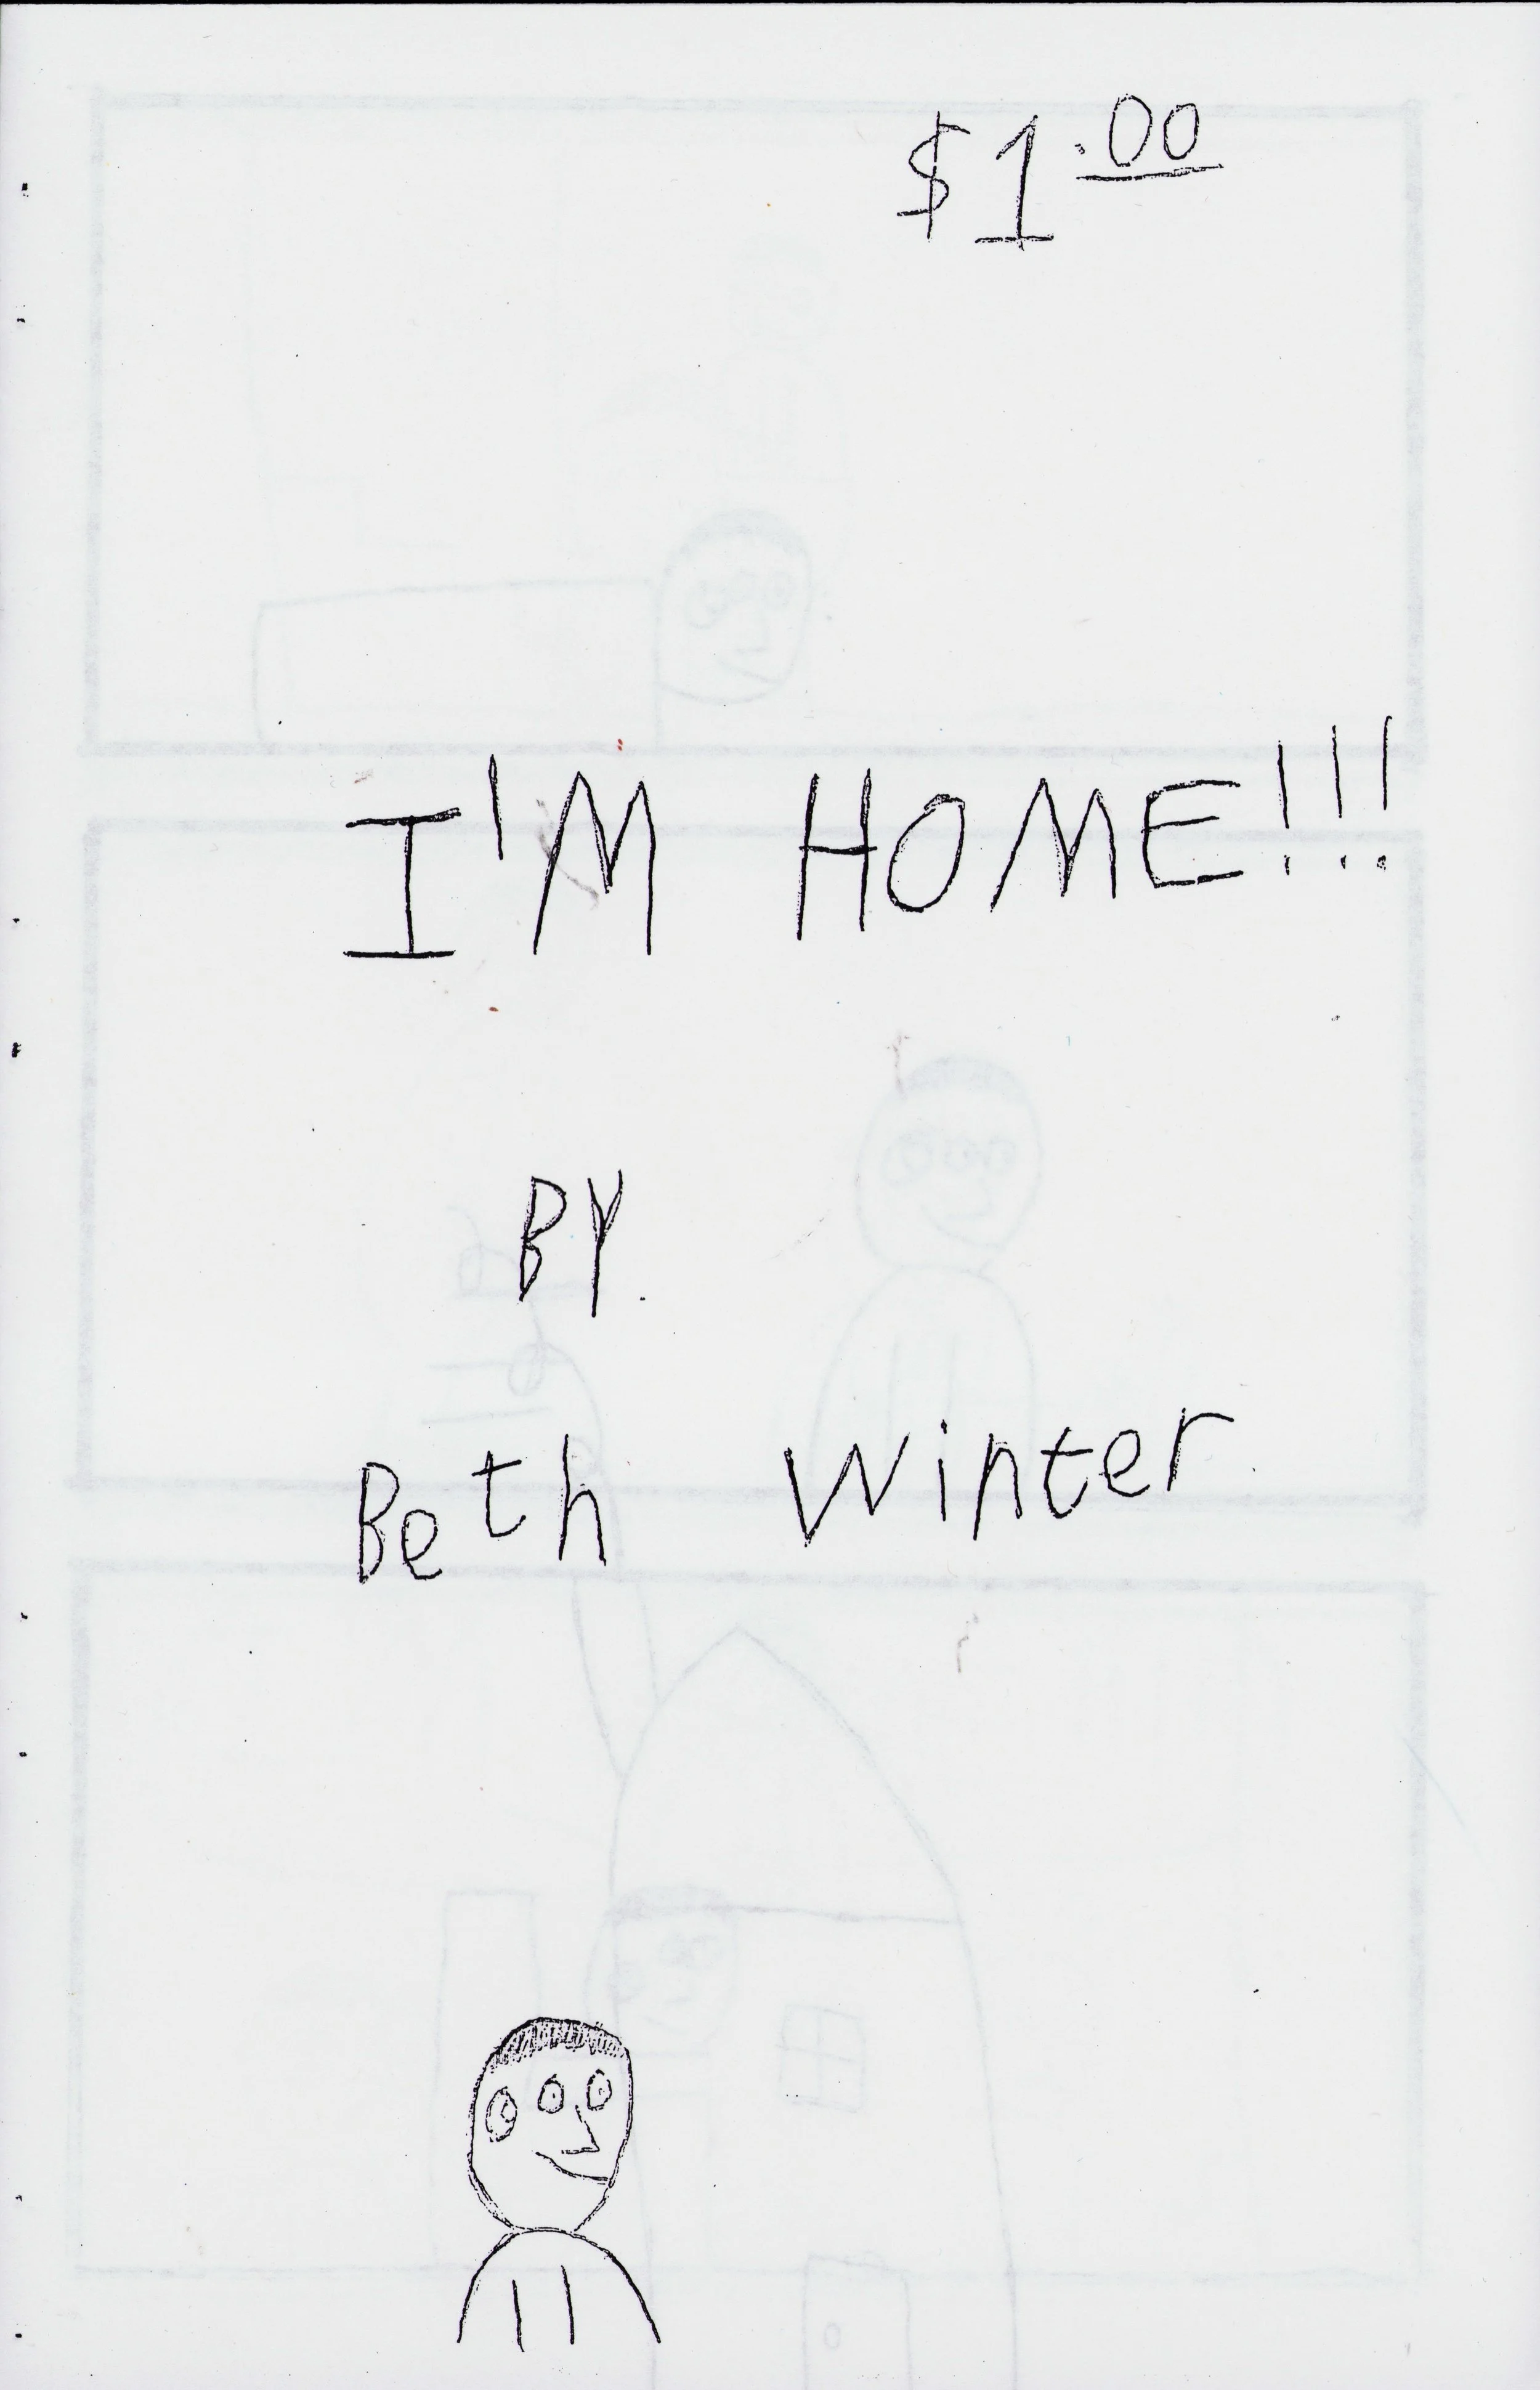 $1.00
I'M HOME!!!
BY
Beth Winter